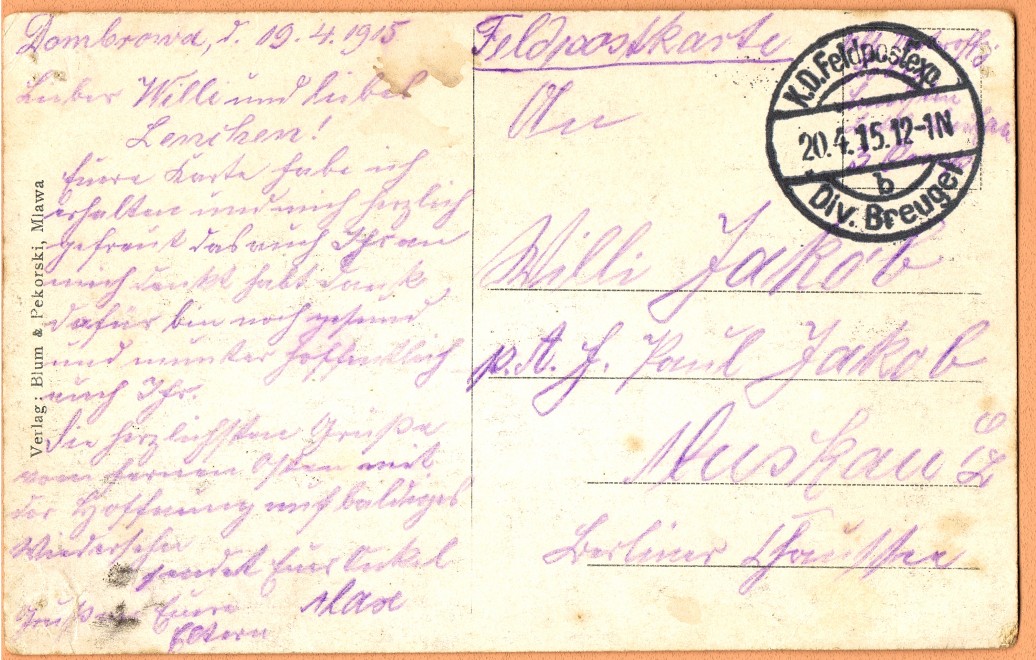 Dombrowa, d. 19.4.1915
Lieber Willi und liebes
Lenchen!
Euere Karte habe ich
erhalten und mich herzlich
gefreut das auch Ihr an
mich denkt habt dank
dafür bin noch gesund
und munter hoffentlich
auch Ihr.
Die herzlichsten Grüße
vom fernen Osten mit
der Hoffnung auf baldiges
Wiedersehn
sendet Euer Onkel
Max
Grüße Euere
Eltern
Verlag: Blum & Pekorski, Mlawa
Feldpostkarte
K.D. Feldpostexp.
20.4.15.12-1N
b
Div. Breugel
An
Willi Jakob
p. A. H. Paul Jakob
Muskau O/L
Berliner Chaussee